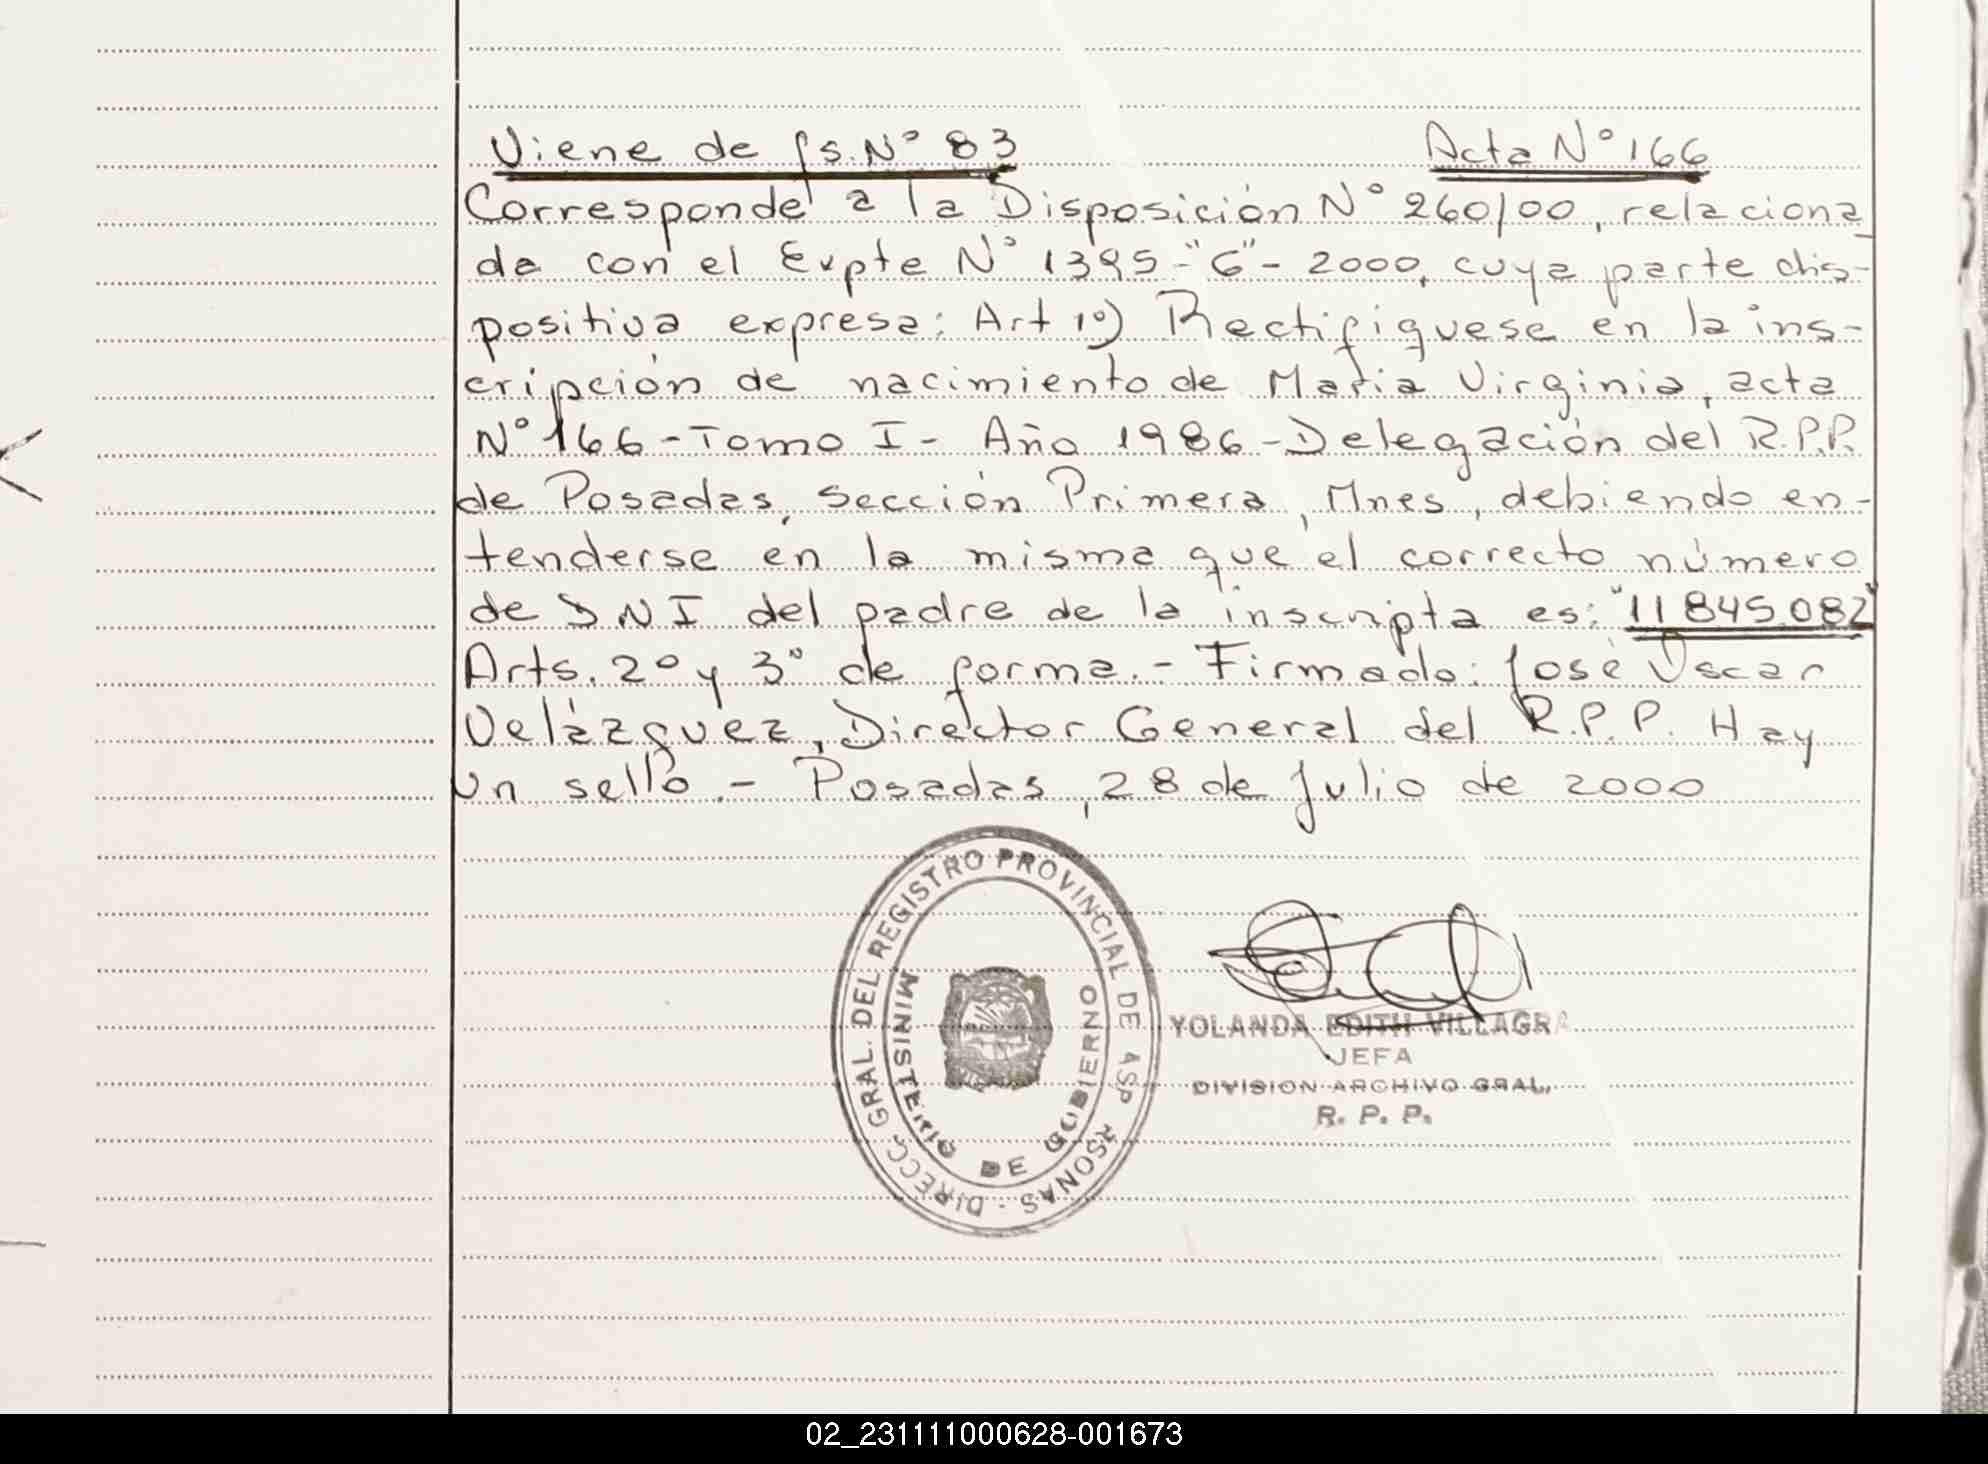 Viene de fs. Nº 83 Acta Nº 166
Corresponde a la Disposición Nº 260/00, relaciona
da con el Expte Nº 1395-"G"- 2000, cuya parte dis-
positiva expresa: Art 1º) Rectifiquese en la ins-
cripción de nacimiento de Maria Virginia, acta
Nº 166 - Tomo I - Año 1986 - Delegación del R.P.P.
de Posadas, sección Primera, Mnes, debiendo en-
tenderse en la misma que el correcto número
de DNI del padre de la inscripta es: "11845.082"
Arts. 2º y 3º de forma. - Firmado: José Oscar
Velázquez, Director General del R.P.P. Hay
un sello. - Posadas, 28 de Julio de 2000
DIRECC. GRAL. DEL REGISTRO PROVINCIAL DE ASP RSONAS -
MINISTERIO DE GOBIERNO
YOLANDA EDITH VILLAGRA
JEFA
DIVISION ARCHIVO GRAL.
R. P. P.
02_231111000628-001673